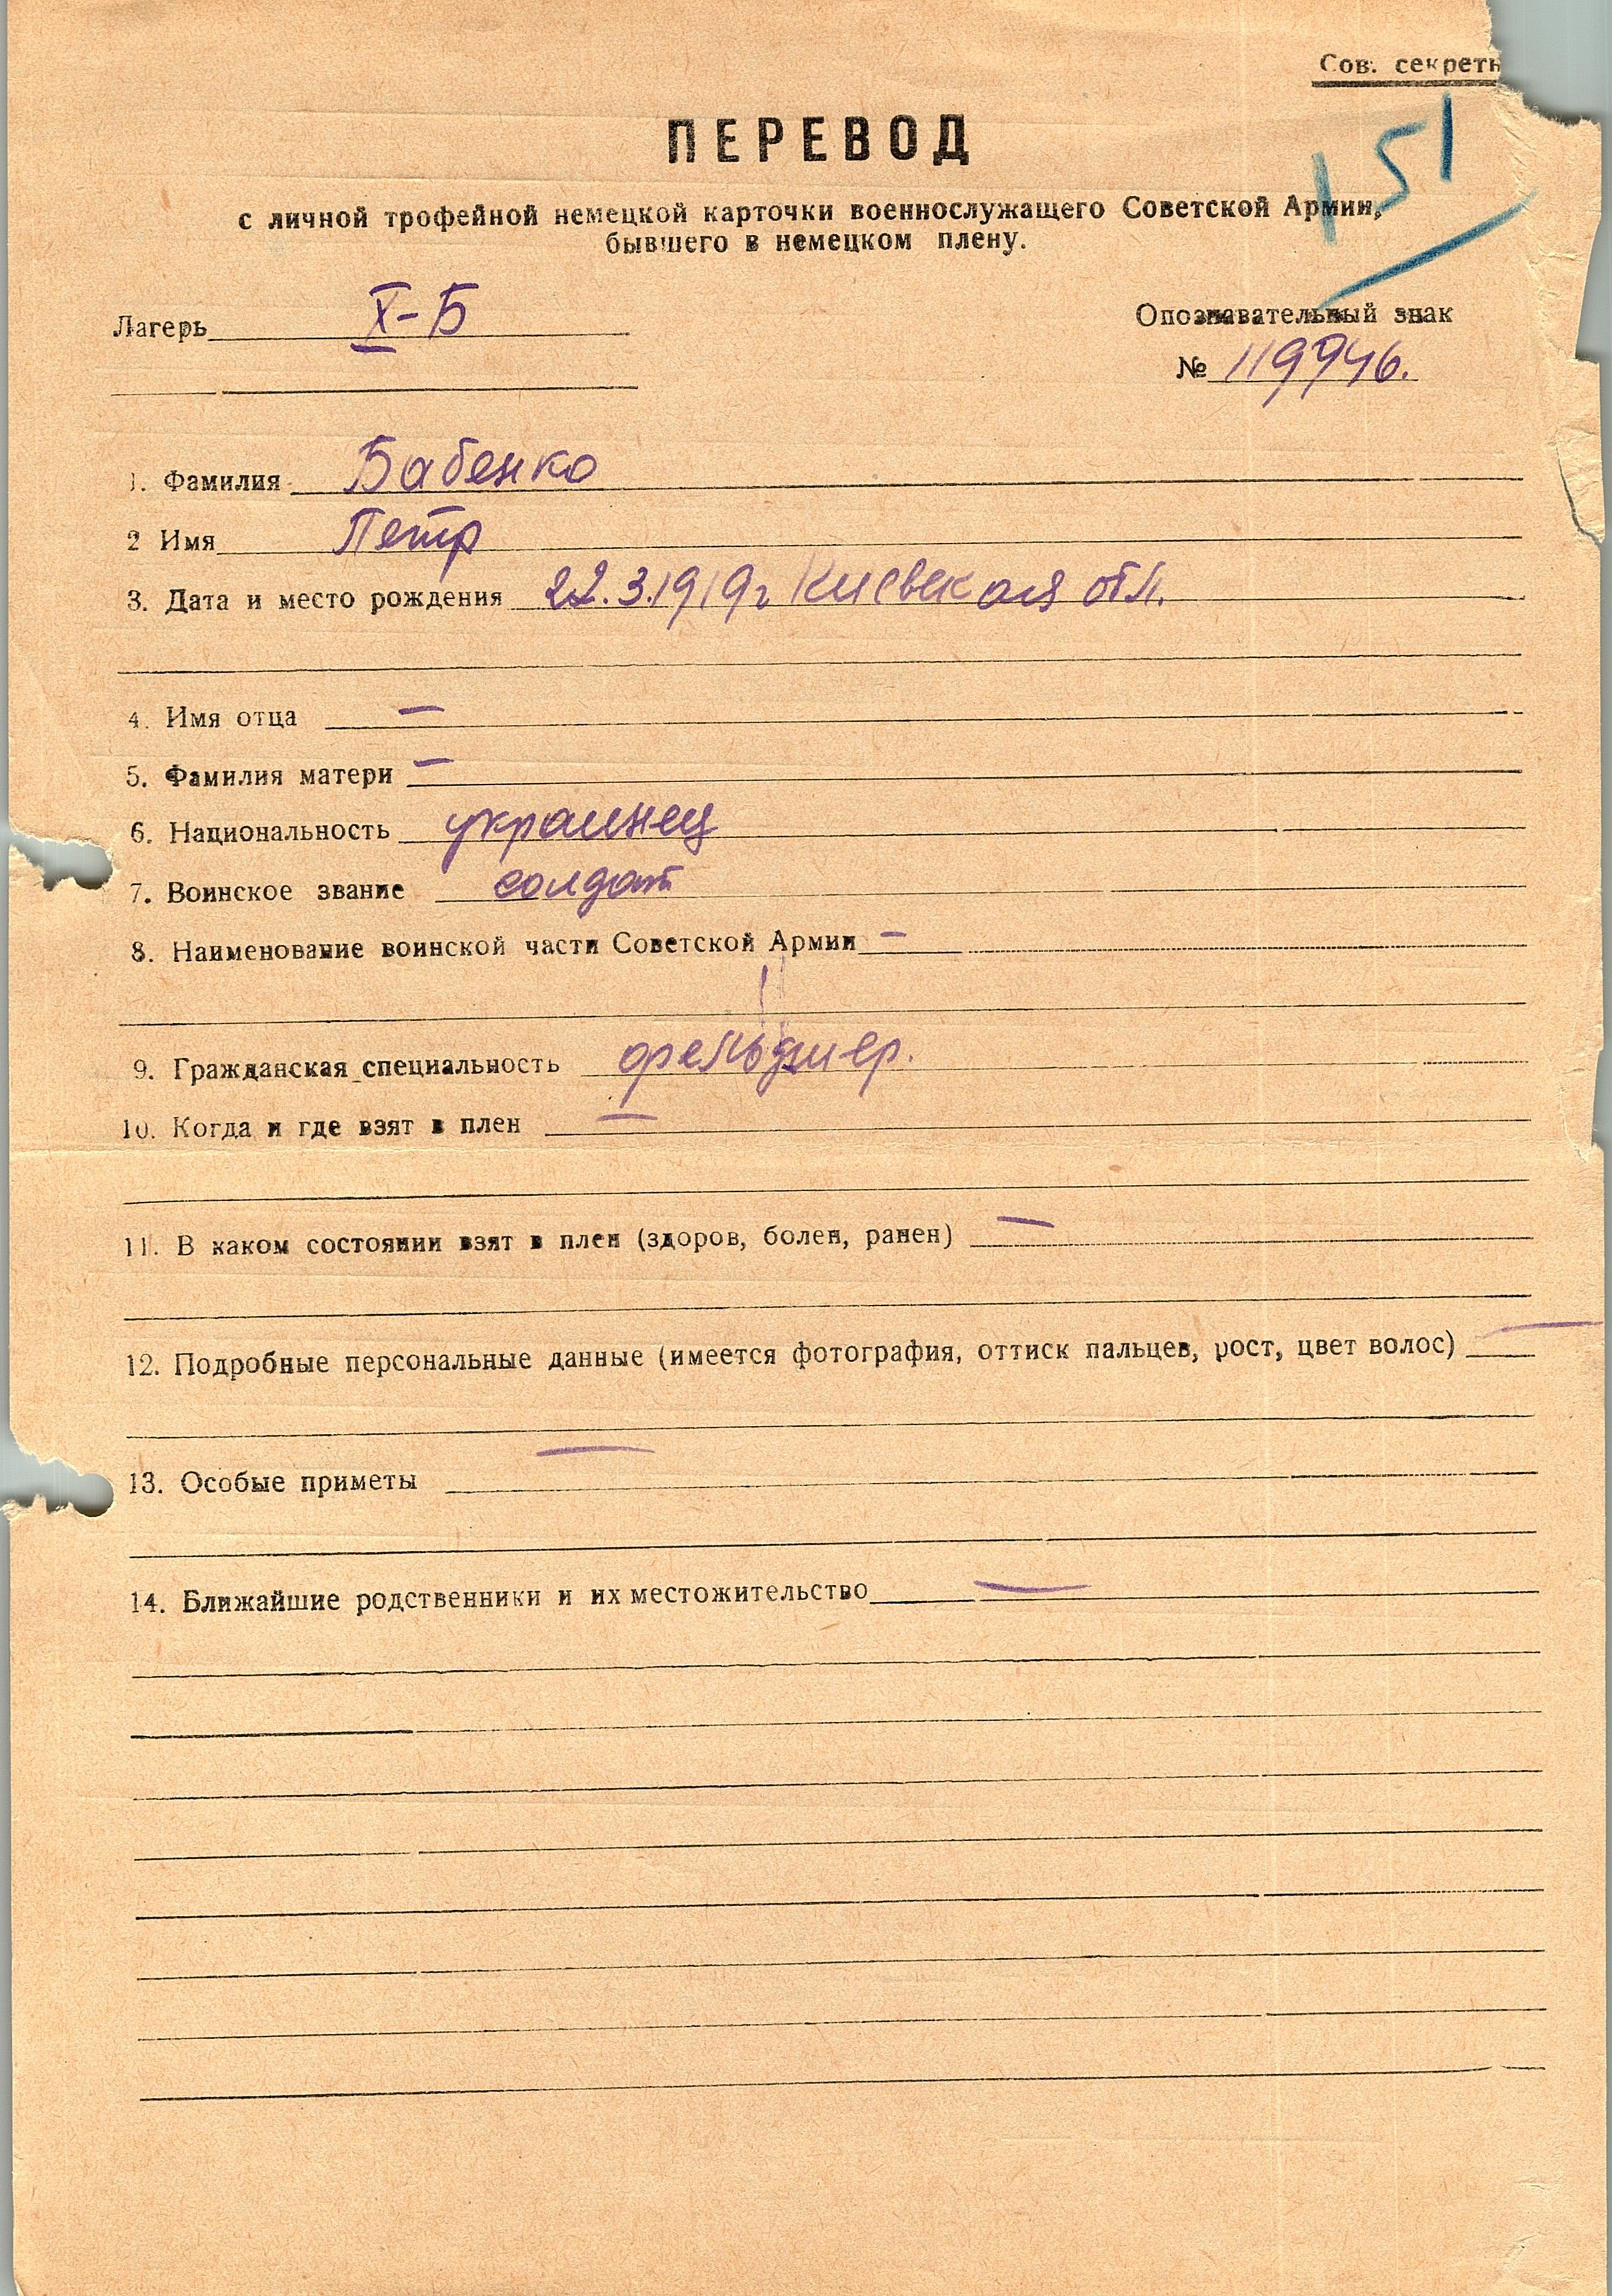 Сов. секретн
151
ПЕРЕВОД
с личной трофейной немецкой карточки военнослужащего Советской Армии,
бывшего в немецком плену.
Лагерь X-Б
Опознавательный знак
№ 119946.
1. Фамилия Бабенко
2 Имя Петр
3. Дата и место рождения 22.3.1919г Киевская обл.
4. Имя отца —
5. Фамилия матери —
6. Национальность украинец
7. Воинское звание солдат
8. Наименование воинской части Советской Армии —
9. Гражданская специальность фельдшер.
10. Когда и где взят в плен —
11. В каком состоянии взят в плен (здоров, болен, ранен) —
12. Подробные персональные данные (имеется фотография, оттиск пальцев, рост, цвет волос) —
13. Особые приметы —
14. Ближайшие родственники и их местожительство —